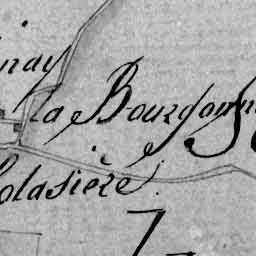 nay
la Bourgonn
S
olasière
Z